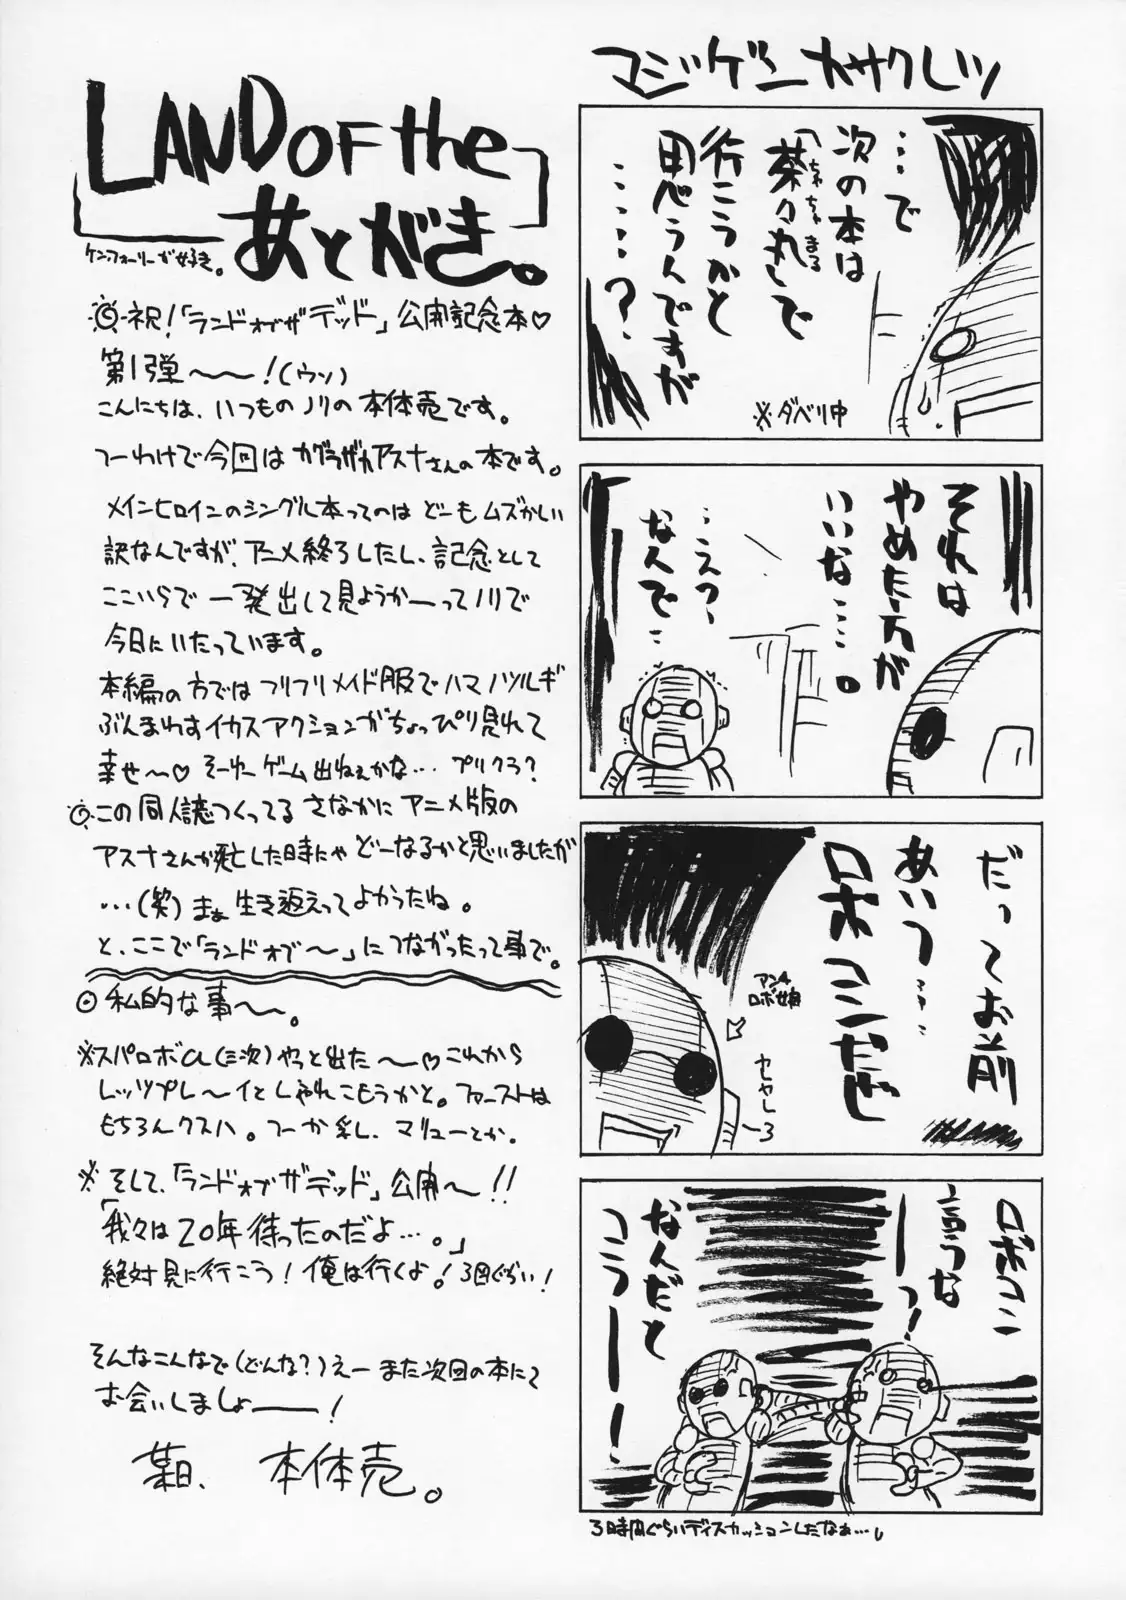 LAND OF the
あとがき。
ケンフォーリーが好き。
◎祝!「ランドオブザデッド」公開記念本♡
第1弾〜〜!(ウソ)
こんにちは、いつものノリの本体売です。
つーわけで今回はカグラザカアスナさんの本です。
メインヒロインのシングル本ってのはどーもムズかしい
訳なんですが、アニメ終了したし、記念として
ここいらで一発出して見ようかーってノリで
今日にいたっています。
本編の方ではフリフリメイド服でハマノツルギ
ぶんまわすイカスアクションがちょっぴり見れて
幸せ〜♡そーゆーゲーム出ねぇかな…プリクラ?
◎この同人誌つくってるさなかにアニメ版の
アスナさんが死亡した時にゃどーなるかと思いましたが
…(笑)まぁ生き返えってよかったね。
と、ここで「ランドオブ〜」につながったって事で。
◎私的な事〜〜。
※スパロボα(三次)やっと出た〜♡これから
レッツプレ〜イとしゃれこもうかと。ファーストは
もちろんクスハ。つーか乳し、マリューとか。
※そして、「ランドオブザデッド」公開〜!!
「我々は20年待ったのだよ…。」
絶対見に行こう!俺は行くよ!3回ぐらい!
そんなこんなで(どんな?)えーまた次回の本にて
お会いしましょーー!
某日、本体売。
マジゲンカサクレツ
…で
次の本は
「茶々丸」で
ちゃちゃまる
行こうかと
思うんですが
……?
※ダベリ中
それは
やめた方が
いいな…。
…えっ、
なんで…
だってお前
あいつ……
ロボコンだぜ
アンチ
ロボ娘
ロボコン
言うな
ーーっ!
なんだと
コラーー!
3時間ぐらいディスカッションしたなぁ…。